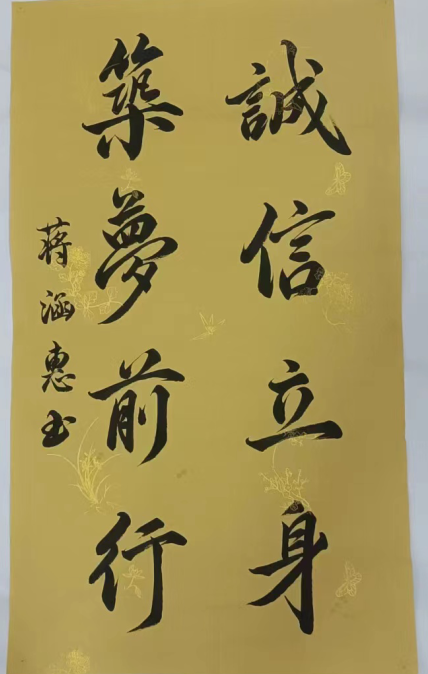 誠信立身
築夢前行
蒋涵惠书